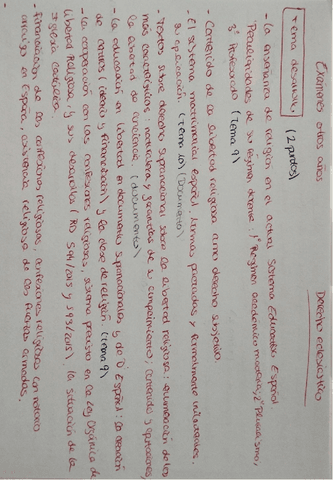 Exámenes otros años
Derecho eclesiástico
Tema desarrollar (2 puntos)
- La enseñanza de religión en el actual Sistema Educativo Español
Peculiaridades de su régimen docente: 1º Régimen académico
3º Profesorado (Tema 9)
- Contenido de la libertad religiosa como derecho subjetivo.
- El sistema matrimonial español. Formas pactadas y formalmente
separación. (Tema 10) (Documento)
- Textos sobre derecho supranacional sobre la libertad religiosa: enumeración de los
más característicos: naturaleza y garantías de su cumplimiento, contenido y
la libertad de conciencia. (documento)
- La educación en libertad en documentos supranacionales y de D. Español: la creación
de centros (ideario y financiación) y la clase de religión. (Tema 9)
- La cooperación con las confesiones religiosas, sistema previsto en la Ley Orgánica de
Libertad Religiosa, y su desarrollo (RD 594/2015 y 593/2015). La situación de la
Iglesia Católica.
- Financiación de las confesiones religiosas, confesiones religiosas con notorio
arraigo en España, asistencia religiosa de las fuerzas armadas.